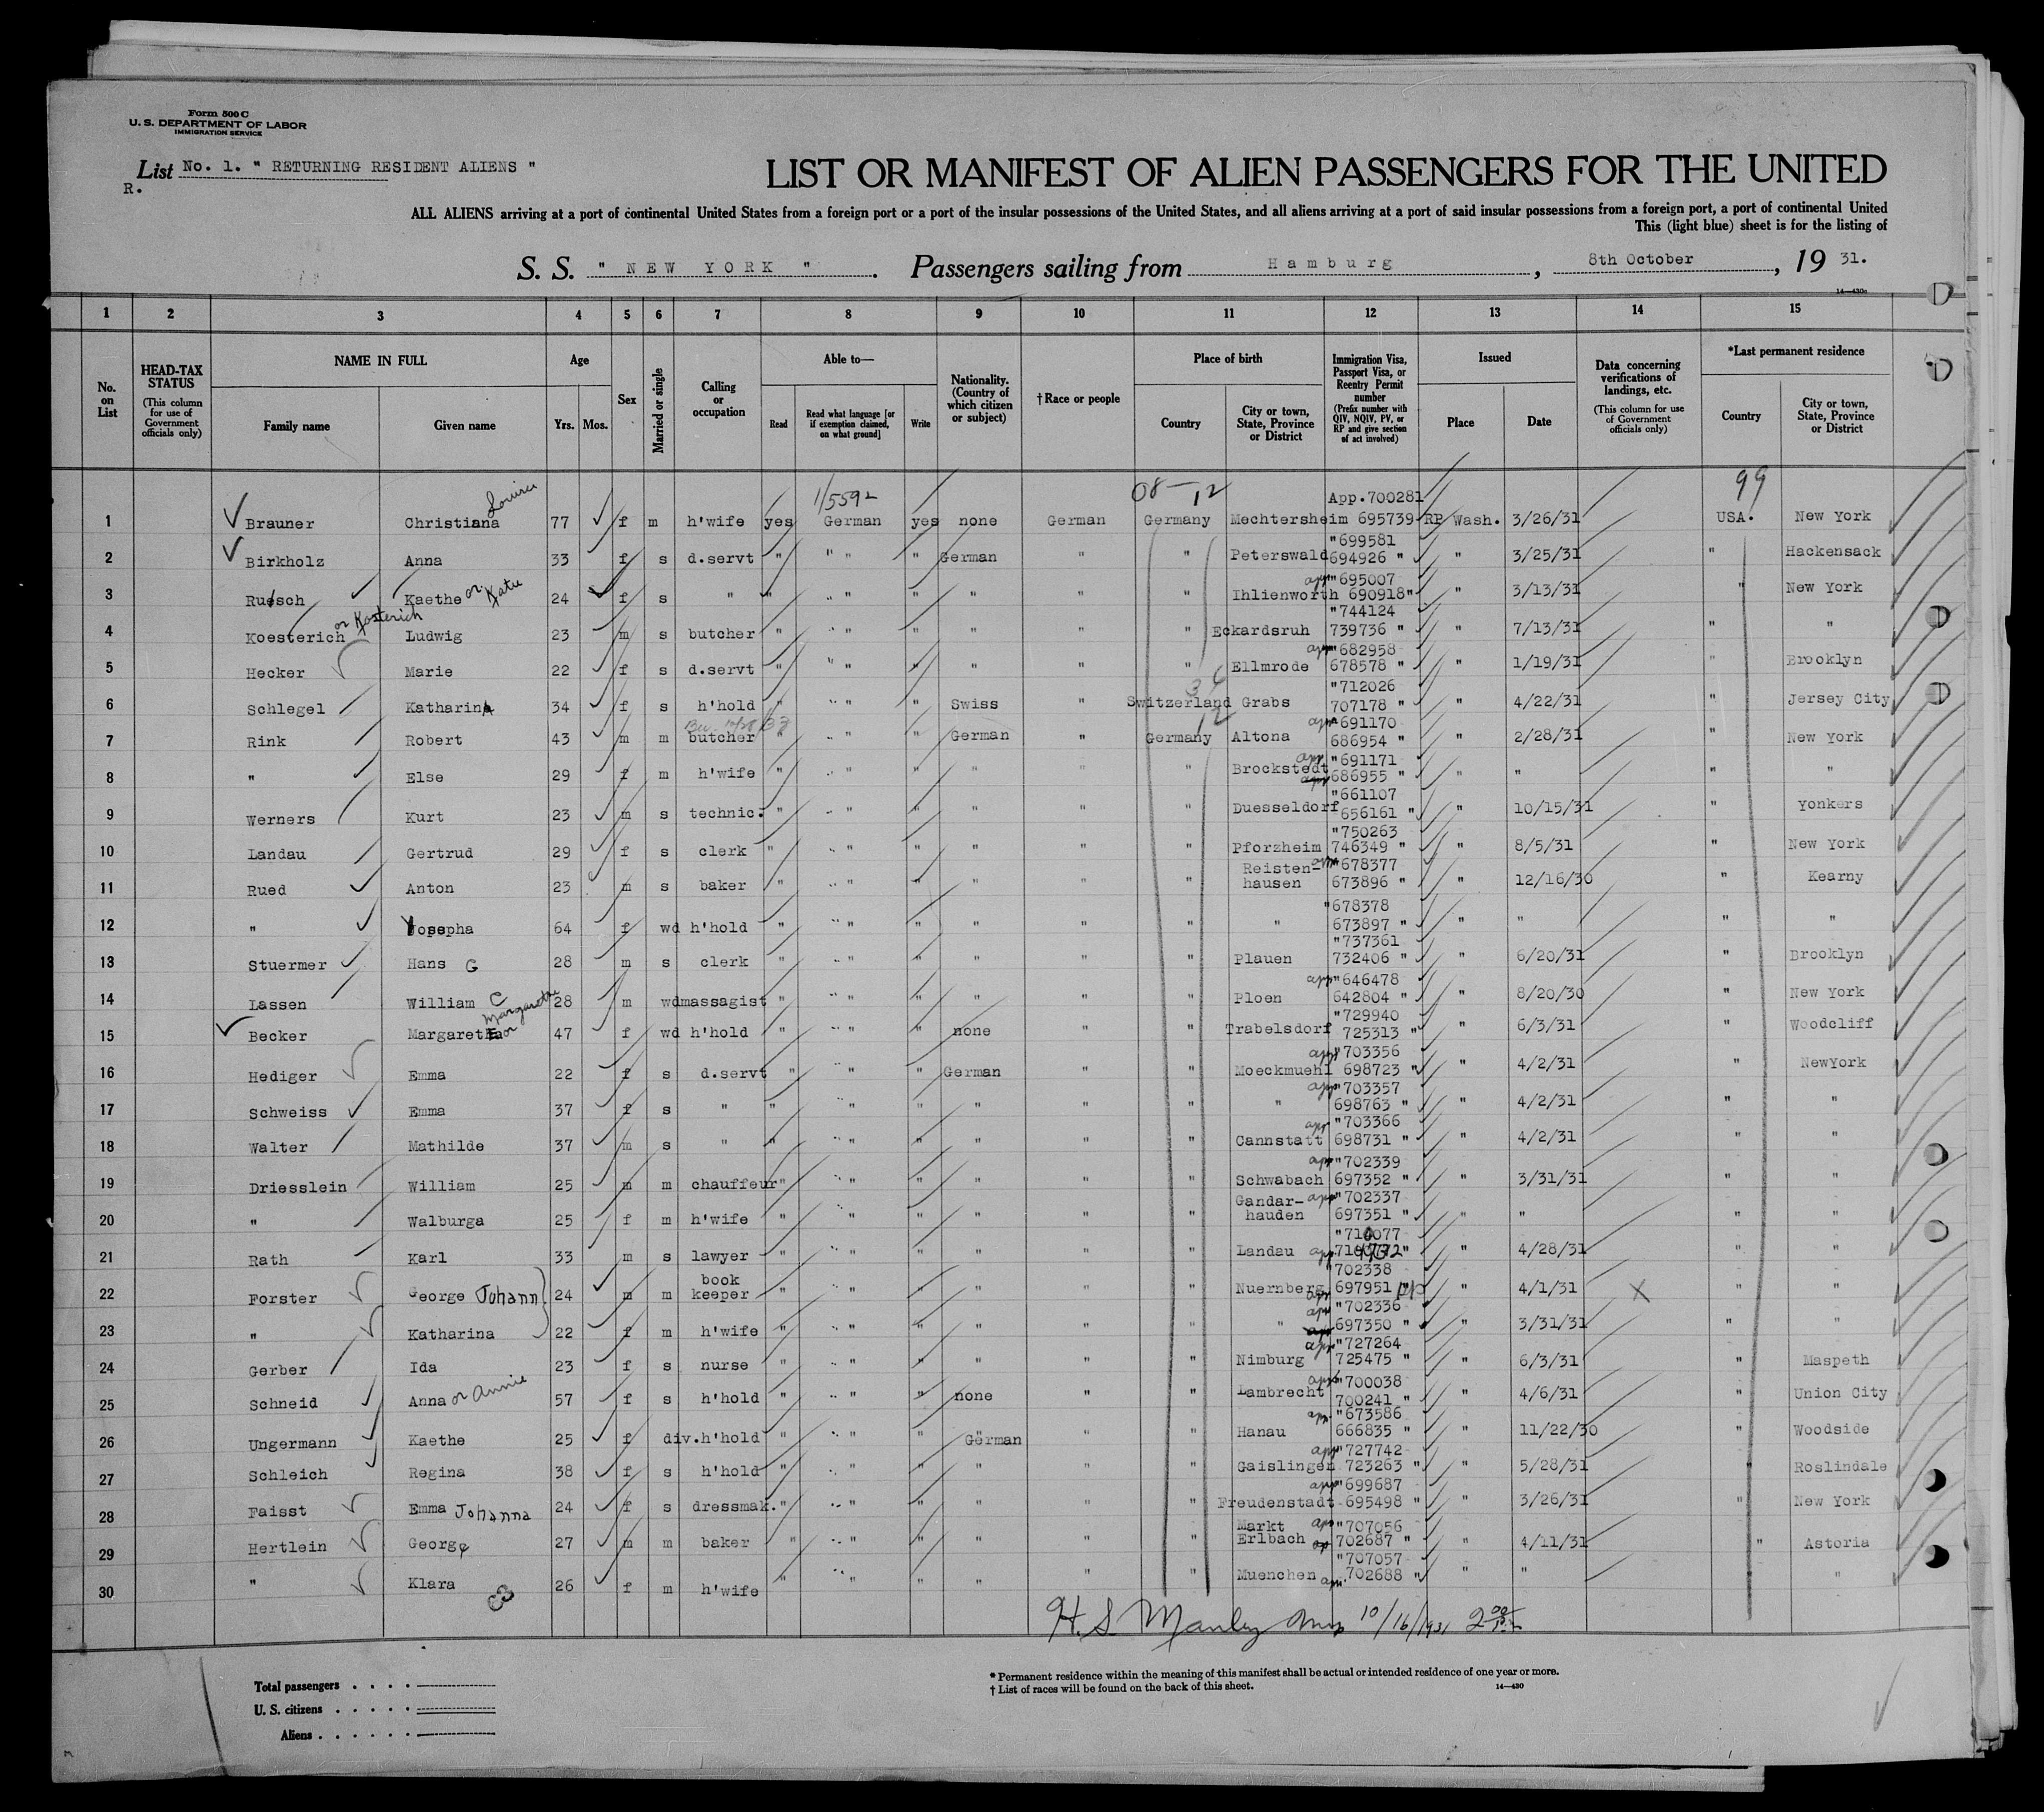 Form 500 C
U. S. DEPARTMENT OF LABOR
IMMIGRATION SERVICE
List No. 1. " RETURNING RESIDENT ALIENS "
R.
LIST OR MANIFEST OF ALIEN PASSENGERS FOR THE UNITED
ALL ALIENS arriving at a port of continental United States from a foreign port or a port of the insular possessions of the United States, and all aliens arriving at a port of said insular possessions from a foreign port, a port of continental United
This (light blue) sheet is for the listing of
S. S. " NEW YORK ". Passengers sailing from Hamburg, 8th October, 19 31.
14—430a
1 2 3 4 5 6 7 8 9 10 11 12 13 14 15
No. on List
HEAD-TAX STATUS (This column for use of Government officials only)
NAME IN FULL Family name Given name
Age Yrs. Mos.
Sex
Married or single
Calling or occupation
Able to— Read Read what language [or if exemption claimed, on what ground] Write
Nationality. (Country of which citizen or subject)
† Race or people
Place of birth Country City or town, State, Province or District
Immigration Visa, Passport Visa, or Reentry Permit number (Prefix number with QIV, NQIV, PV, or RP and give section of act involved)
Issued Place Date
Data concerning verifications of landings, etc. (This column for use of Government officials only)
*Last permanent residence Country City or town, State, Province or District
Louisa 1/5592 08-12 App.700281 99
1 Brauner Christiana 77 f m h'wife yes German yes none German Germany Mechtersheim 695739 RP Wash. 3/26/31 USA. New York
"699581
2 Birkholz Anna 33 f s d.servt " " " " German " " Peterswald 694926 " " 3/25/31 " Hackensack
app "695007
3 Ruesch Kaethe or Katie 24 f s " " " " " " " " Ihlienworth 690918 " " 3/13/31 " New York
or Kosterich "744124
4 Koesterich Ludwig 23 m s butcher " " " " " " " Eckardsruh 739736 " " 7/13/31 " "
app "682958
5 Hecker Marie 22 f s d.servt " " " " " " " Ellmrode 678578 " " 1/19/31 " Brooklyn
"712026
6 Schlegel Katharina 34 f s h'hold " " " " Swiss " Switzerland Grabs 707178 " " 4/22/31 " Jersey City
12 app "691170
7 Rink Robert 43 m m butcher " " " " German " Germany Altona 686954 " " 2/28/31 " New York
app "691171
8 " Else 29 f m h'wife " " " " " " " Brockstedt 686955 " " " " "
"661107
9 Werners Kurt 23 m s technic. " " " " " " " Duesseldorf 656161 " " 10/15/31 " Yonkers
"750263
10 Landau Gertrud 29 f s clerk " " " " " " " Pforzheim 746349 " " 8/5/31 " New York
Reisten- app "678377
11 Rued Anton 23 m s baker " " " " " " " hausen 673896 " " 12/16/30 " Kearny
"678378
12 " Josepha 64 f wd h'hold " " " " " " " " 673897 " " " " "
"737361
13 Stuermer Hans G 28 m s clerk " " " " " " " Plauen 732406 " " 6/20/31 " Brooklyn
app "646478
14 Lassen William C 28 m wd massagist " " " " " " " Ploen 642804 " " 8/20/30 " New York
Margarethe "729940
15 Becker Margaretha or 47 f wd h'hold " " " " none " " Trabelsdorf 725313 " " 6/3/31 " Woodcliff
app "703356
16 Hediger Emma 22 f s d.servt " " " German " " Moeckmuehl 698723 " " 4/2/31 " NewYork
app "703357
17 Schweiss Emma 37 f s " " " " " " " " 698763 " " 4/2/31 " "
app "703366
18 Walter Mathilde 37 m s " " " " " " " Cannstatt 698731 " " 4/2/31 " "
app "702339
19 Driesslein William 25 m m chauffeur " " " " " " " Schwabach 697352 " " 3/31/31 " "
Gandar- app "702337
20 " Walburga 25 f m h'wife " " " " " " hauden 697351 " " " " "
"710077
21 Rath Karl 33 m s lawyer " " " " " " " Landau app " 4/28/31 " "
book "702338
22 Forster George Johann 24 m m keeper " " " " " " " Nuernberg app 697951 " " 4/1/31 X " "
app "702336
23 " Katharina 22 f m h'wife " " " " " " " " 697350 " " 3/31/31 " "
app "727264
24 Gerber Ida 23 f s nurse " " " " " " " Nimburg 725475 " " 6/3/31 " Maspeth
app "700038
25 Schneid Anna or Annie 57 f s h'hold " " " " none " " Lambrecht 700241 " " 4/6/31 " Union City
app. "673586
26 Ungermann Kaethe 25 f div. h'hold " " " " German " " Hanau 666835 " " 11/22/30 " Woodside
app "727742
27 Schleich Regina 38 f s h'hold " " " " " " " Gaislingen 723263 " " 5/28/31 " Roslindale
app "699687
28 Faisst Emma Johanna 24 f s dressmak. " " " " " " " Freudenstadt 695498 " " 3/26/31 " New York
Markt app "707056
29 Hertlein George 27 m m baker " " " " " " " Erlbach 702687 " " 4/11/31 " Astoria
"707057
30 " Klara 26 f m h'wife " " " " " " " Muenchen app. 702688 " " " "
H. S. Manley 10/16/1931 2 00
Total passengers
U. S. citizens
Aliens
* Permanent residence within the meaning of this manifest shall be actual or intended residence of one year or more.
† List of races will be found on the back of this sheet. 14—430